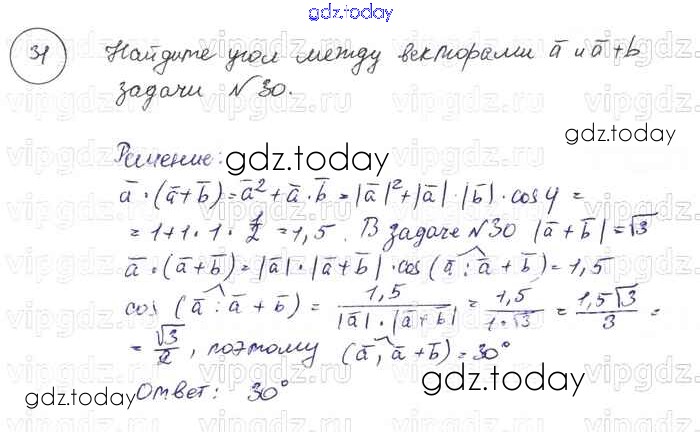 gdz.today
31 Найдите угол между векторами a̅ и a̅+b̅
задачи №30.
Решение:
gdz.today
a̅·(a̅+b̅)=a̅²+a̅·b̅=|a̅|²+|a̅|·|b̅|·cosφ=
=1+1·1·1/2=1,5. В задаче №30 |a̅+b̅|=√3
a̅·(a̅+b̅)=|a̅|·|a̅+b̅|·cos(a̅:a̅+b̅)=1,5
cos(a̅:a̅+b̅)=1,5/(|a̅|·|a̅+b̅|)=1,5/(1·√3)=1,5√3/3=
=√3/2, поэтому (a̅,a̅+b̅)=30°
Ответ: 30°
gdz.today
gdz.today